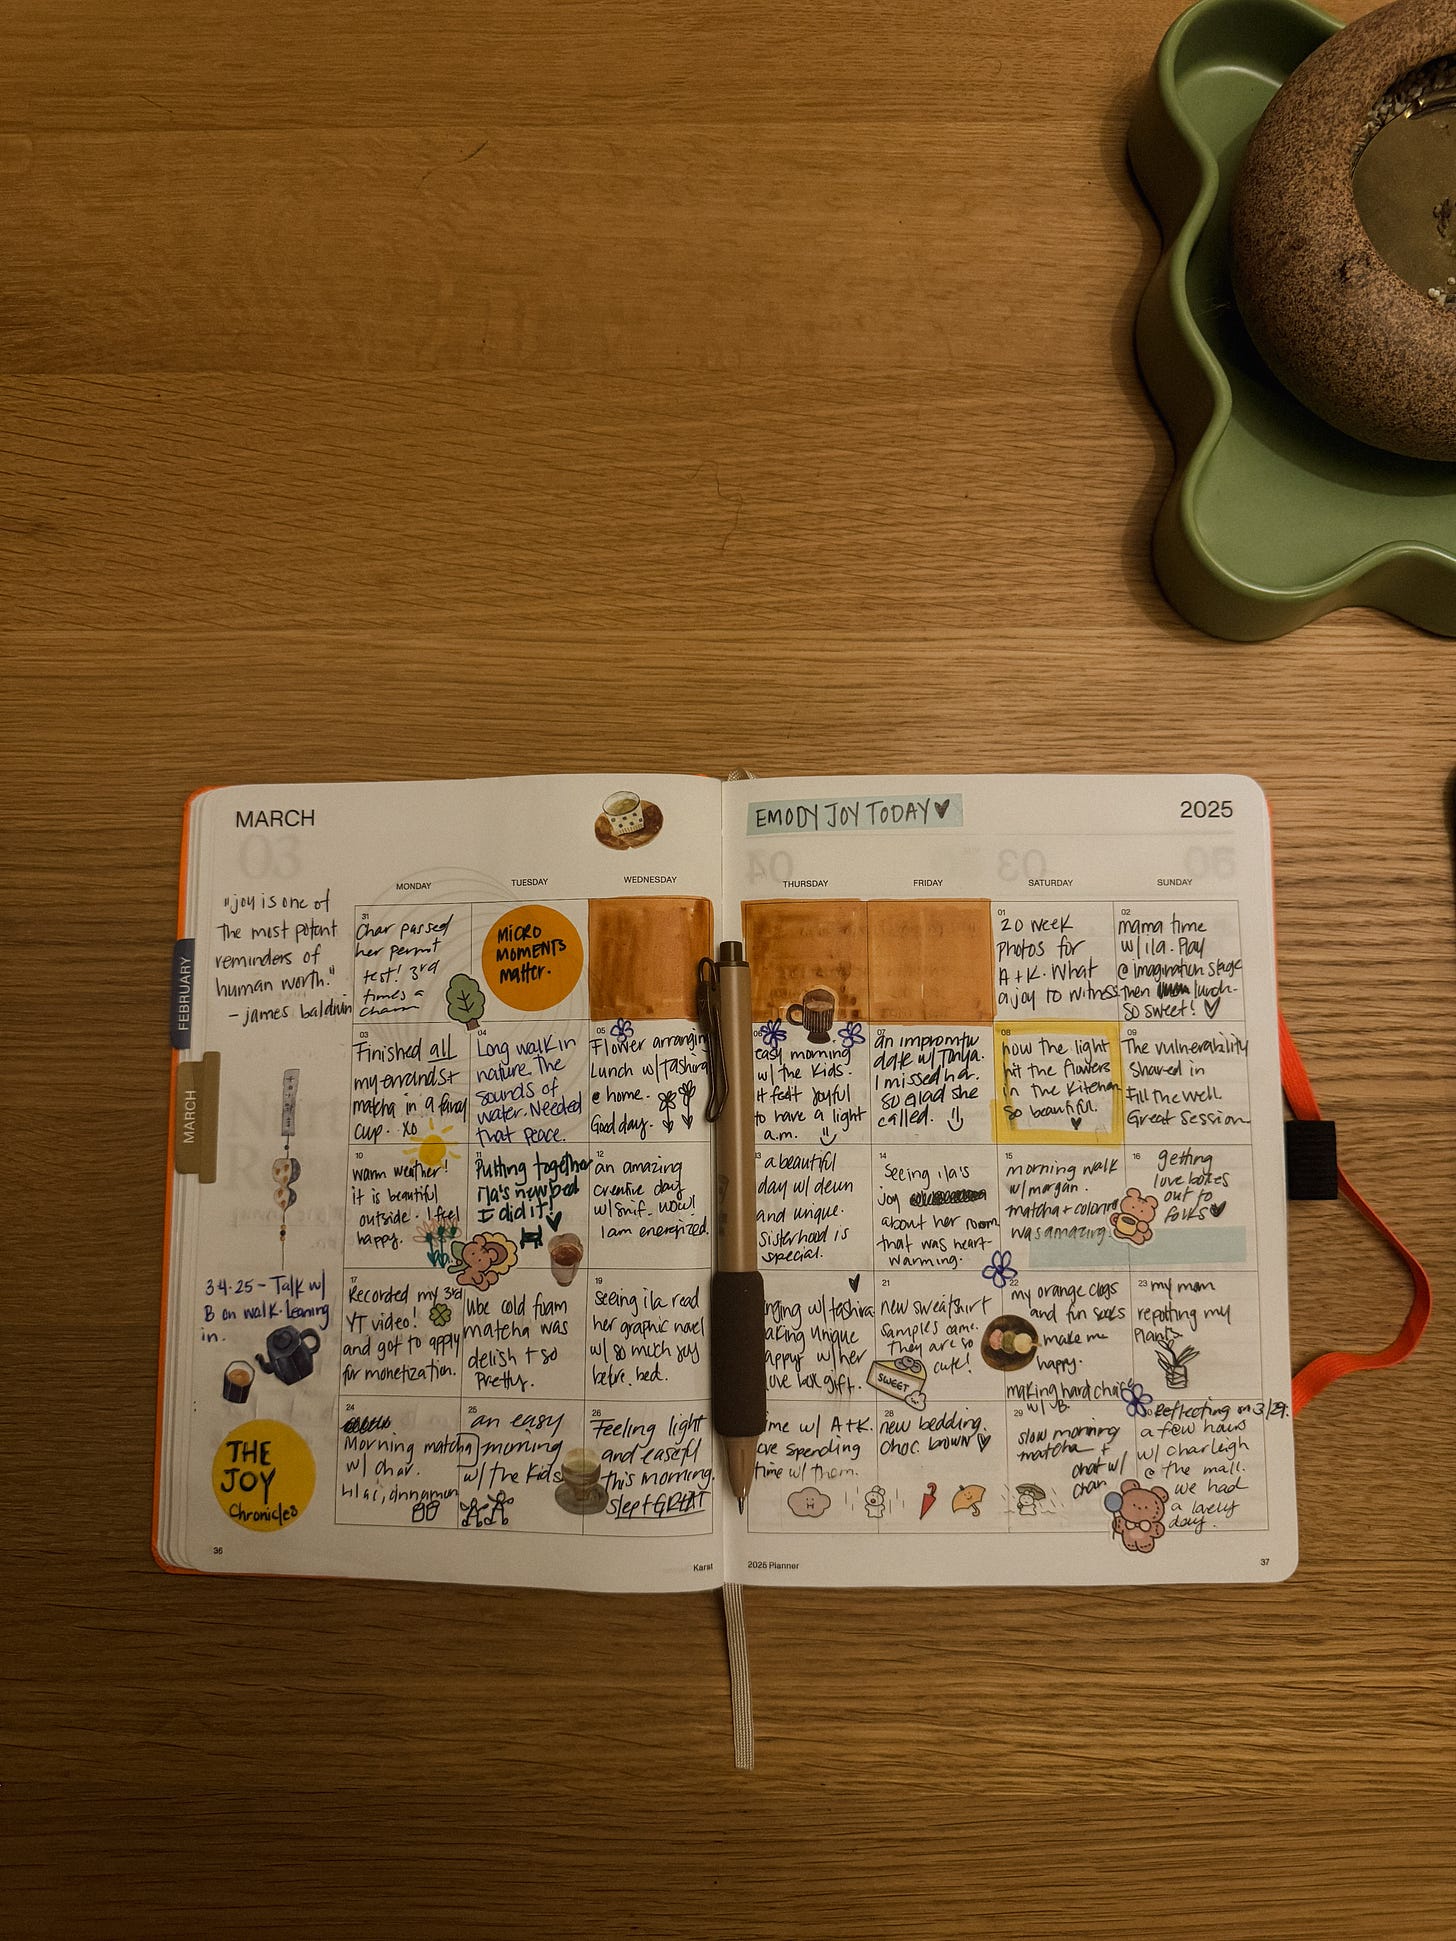 MARCH
EMODY JOY TODAY
2025
03
MONDAY
TUESDAY
WEDNESDAY
THURSDAY
FRIDAY
SATURDAY
SUNDAY
FEBRUARY
MARCH
"joy is one of
the most potent
reminders of
human worth."
- james baldwin
3.4.25 - Talk w/
B on walk. Leaning
in.
THE
JOY
Chronicles
31
Char passed
her permit
test! 3rd
times a
charm
MICRO
MOMENTS
matter.
01
20 week
photos for
A+K. What
a joy to witness
02
mama time
w/ ila. Play
@ imagination stage
then lunch-
so sweet!
03
Finished all
my errands +
matcha in a fancy
cup. xo
04
Long walk in
nature. The
sounds of
water. Needed
that peace.
05
Flower arranging
Lunch w/ Tashira
@ home.
Good day.
06
easy morning
w/ the kids.
it felt joyful
to have a light
a.m.
07
an impromtu
date w/ Tonya.
I missed her.
so glad she
called.
08
how the light
hit the flowers
in the kitchen
so beautiful.
09
The vulnerability
shared in
Fill the Well.
Great session.
10
warm weather!
it is beautiful
outside. I feel
happy.
11
Putting together
ila's new bed
I did it!
12
an amazing
creative day
w/ Snif. wow!
I am energized.
13
a beautiful
day w/ deun
and unique.
sisterhood is
special.
14
Seeing ila's
joy
about her room
that was heart-
warming.
15
morning walk
w/ morgan.
matcha + coloring
was amazing.
16
getting
love boxes
out to
folks
17
Recorded my 3rd
YT video!
and got to apply
for monetization.
ube cold foam
matcha was
delish + so
pretty.
19
Seeing ila read
her graphic novel
w/ so much joy
before bed.
w/ tashira
unique
w/ her
box gift.
21
new sweatshirt
samples came.
they are so
cute!
SWEET
22
my orange clogs
and fun socks
make me
happy.
making hard choices
w/ JB.
23
my mom
repotting my
plants
24
Morning matcha
w/ char.
lilac, cinnamon
25
an easy
morning
w/ the kids
26
Feeling light
and easeful
this morning.
slept GREAT
w/ A+K.
spending
time w/ them.
28
new bedding.
choc. brown
29
slow morning
matcha +
chat w/
char
Reflecting on 3/29.
a few hours
w/ charleigh
@ the mall.
we had
a lovely
day.
36
Karst
2025 Planner
37